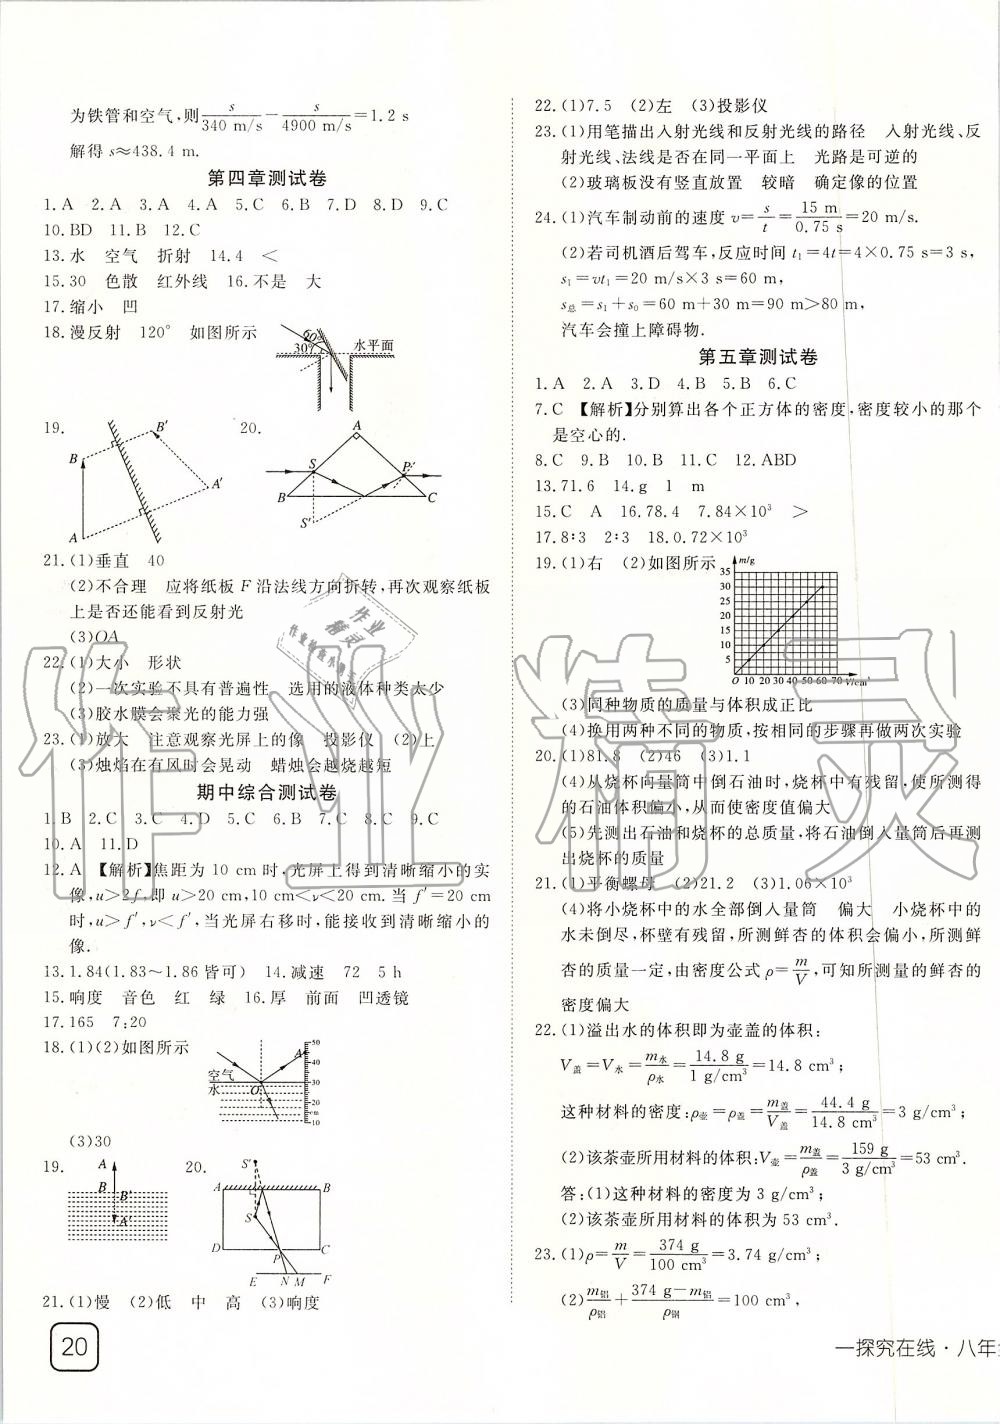 为铁管和空气,则s/340 m/s－s/4900 m/s=1.2 s
解得 s≈438.4 m.
第四章测试卷
1.A 2.A 3.A 4.A 5.C 6.B 7.D 8.D 9.C
10.BD 11.B 12.C
13.水 空气 折射 14.4 <
15.30 色散 红外线 16.不是 大
17.缩小 凹
18.漫反射 120° 如图所示
60° 30° 水平面
19.
B B′ A A′
20.
A S P′ B C S′
21.(1)垂直 40
(2)不合理 应将纸板 F 沿法线方向折转,再次观察纸板
上是否还能看到反射光
(3)OA
22.(1)大小 形状
(2)一次实验不具有普遍性 选用的液体种类太少
(3)胶水膜会聚光的能力强
23.(1)放大 注意观察光屏上的像 投影仪 (2)上
(3)烛焰在有风时会晃动 蜡烛会越烧越短
期中综合测试卷
1.B 2.C 3.C 4.D 5.C 6.C 7.B 8.C 9.C
10.A 11.D
12.A 【解析】焦距为 10 cm 时,光屏上得到清晰缩小的实
像,u>2f,即 u>20 cm,10 cm<v<20 cm.当 f′=20 cm
时,u>f′,v<f′,当光屏右移时,能接收到清晰缩小的
像.
13.1.84(1.83～1.86 皆可) 14.减速 72 5 h
15.响度 音色 红 绿 16.厚 前面 凹透镜
17.165 7:20
18.(1)(2)如图所示
空气 水 A O 50 40 30 20 cm 10
(3)30
19.
A B B′ A′
20.
S′ A B S D P C E N M F
21.(1)慢 (2)低 中 高 (3)响度
20
22.(1)7.5 (2)左 (3)投影仪
23.(1)用笔描出入射光线和反射光线的路径 入射光线、反
射光线、法线是否在同一平面上 光路是可逆的
(2)玻璃板没有竖直放置 较暗 确定像的位置
24.(1)汽车制动前的速度 v=s/t=15 m/0.75 s=20 m/s.
(2)若司机酒后驾车,反应时间 t₁=4t=4×0.75 s=3 s,
s₁=vt₁=20 m/s×3 s=60 m,
s总=s₁+s₀=60 m+30 m=90 m>80 m,
汽车会撞上障碍物.
第五章测试卷
1.A 2.A 3.D 4.B 5.B 6.C
7.C 【解析】分别算出各个正方体的密度,密度较小的那个
是空心的.
8.C 9.C 10.B 11.C 12.ABD
13.71.6 14.g l m
15.C A 16.78.4 7.84×10³ >
17.8:3 2:3 18.0.72×10³
19.(1)右 (2)如图所示
m/g 35 30 25 20 15 10 5 O 10 20 30 40 50 60 70 V/cm³
(3)同种物质的质量与体积成正比
(4)换用两种不同的物质,按相同的步骤再做两次实验
20.(1)81.8 (2)46 (3)1.1
(4)从烧杯向量筒中倒石油时,烧杯中有残留,使所测得
的石油体积偏小,从而使密度值偏大
(5)先测出石油和烧杯的总质量,将石油倒入量筒后再测
出烧杯的质量
21.(1)平衡螺母 (2)21.2 (3)1.06×10³
(4)将小烧杯中的水全部倒入量筒 偏大 小烧杯中的
水未倒尽,杯壁有残留,所测鲜杏的体积会偏小,所测鲜
杏的质量一定,由密度公式 ρ=m/V,可知所测量的鲜杏的
密度偏大
22.(1)溢出水的体积即为壶盖的体积:
V盖=V水=m水/ρ水=14.8 g/1 g/cm³=14.8 cm³;
这种材料的密度:ρ壶=ρ盖=m盖/V盖=44.4 g/14.8 cm³=3 g/cm³;
(2)该茶壶所用材料的体积:V壶=m盖/ρ盖=159 g/3 g/cm³=53 cm³.
答:(1)这种材料的密度为 3 g/cm³;
(2)该茶壶所用材料的体积为 53 cm³.
23.(1)ρ=m/V=374 g/100 cm³=3.74 g/cm³;
(2)m铝/ρ铝+374 g－m铝/ρ钢=100 cm³,
一探究在线·八年
作业精灵